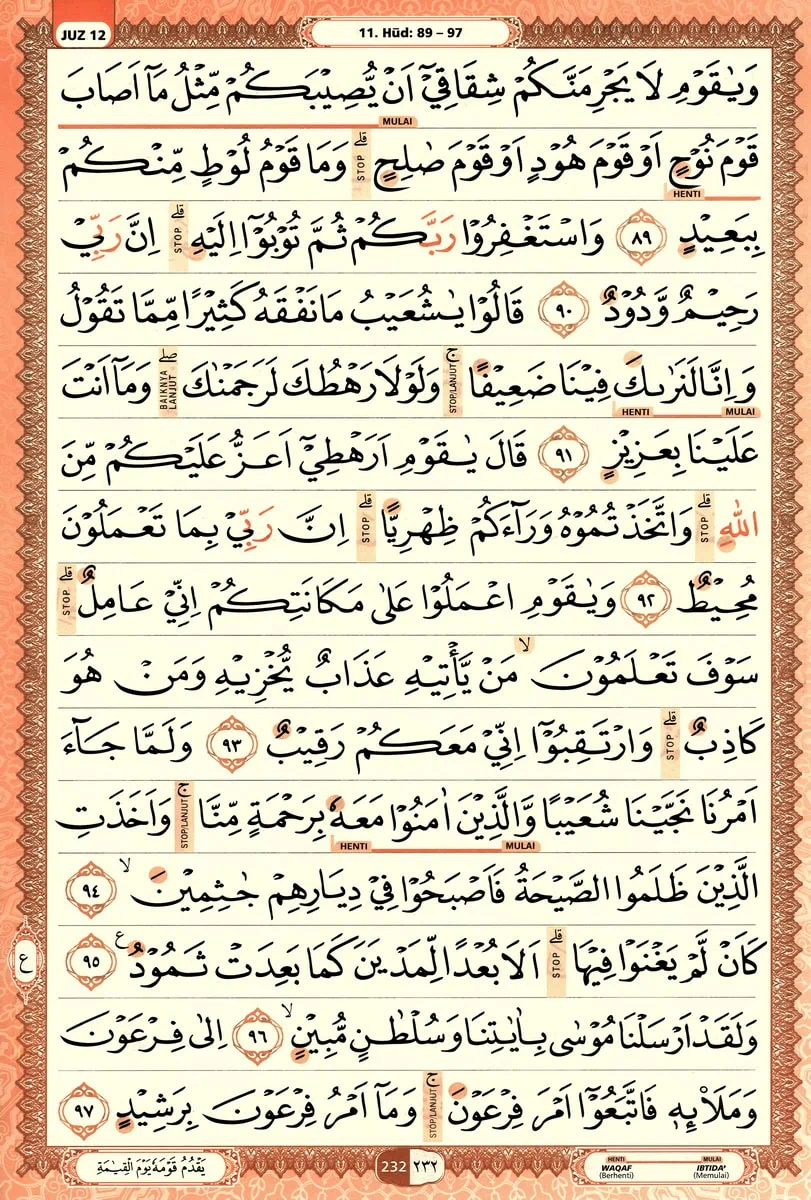 JUZ 12
11. Hūd: 89 – 97
وَيٰقَوْمِ لَا يَجْرِمَنَّكُمْ شِقَاقِيْٓ اَنْ يُّصِيْبَكُمْ مِّثْلُ مَآ اَصَابَ
MULAI
قَوْمَ نُوْحٍ اَوْ قَوْمَ هُوْدٍ اَوْ قَوْمَ صٰلِحٍ ۗ STOP وَمَا قَوْمُ لُوْطٍ مِّنْكُمْ
HENTI
بِبَعِيْدٍ ٨٩ وَاسْتَغْفِرُوْا رَبَّكُمْ ثُمَّ تُوْبُوْٓا اِلَيْهِ ۗ STOP اِنَّ رَبِّيْ
رَحِيْمٌ وَّدُوْدٌ ٩٠ قَالُوْا يٰشُعَيْبُ مَا نَفْقَهُ كَثِيْرًا مِّمَّا تَقُوْلُ
وَاِنَّا لَنَرٰىكَ فِيْنَا ضَعِيْفًا ۚ STOP/LANJUT وَلَوْلَا رَهْطُكَ لَرَجَمْنٰكَ ۖ BAIKNYA LANJUT وَمَآ اَنْتَ
HENTI MULAI
عَلَيْنَا بِعَزِيْزٍ ٩١ قَالَ يٰقَوْمِ اَرَهْطِيْٓ اَعَزُّ عَلَيْكُمْ مِّنَ
اللّٰهِ ۗ STOP وَاتَّخَذْتُمُوْهُ وَرَآءَكُمْ ظِهْرِيًّا ۗ STOP اِنَّ رَبِّيْ بِمَا تَعْمَلُوْنَ
مُحِيْطٌ ٩٢ وَيٰقَوْمِ اعْمَلُوْا عَلٰى مَكَانَتِكُمْ اِنِّيْ عَامِلٌ ۗ STOP
سَوْفَ تَعْلَمُوْنَ ۙ مَنْ يَّأْتِيْهِ عَذَابٌ يُّخْزِيْهِ وَمَنْ هُوَ
كَاذِبٌ ۗ STOP وَارْتَقِبُوْٓا اِنِّيْ مَعَكُمْ رَقِيْبٌ ٩٣ وَلَمَّا جَآءَ
اَمْرُنَا نَجَّيْنَا شُعَيْبًا وَّالَّذِيْنَ اٰمَنُوْا مَعَهٗ بِرَحْمَةٍ مِّنَّا ۚ STOP/LANJUT وَاَخَذَتِ
HENTI MULAI
الَّذِيْنَ ظَلَمُوا الصَّيْحَةُ فَاَصْبَحُوْا فِيْ دِيَارِهِمْ جٰثِمِيْنَ ۙ ٩٤
كَاَنْ لَّمْ يَغْنَوْا فِيْهَا ۗ STOP اَلَا بُعْدًا لِّمَدْيَنَ كَمَا بَعِدَتْ ثَمُوْدُ ࣖ ٩٥
ع
وَلَقَدْ اَرْسَلْنَا مُوْسٰى بِاٰيٰتِنَا وَسُلْطٰنٍ مُّبِيْنٍ ۙ ٩٦ اِلٰى فِرْعَوْنَ
وَمَلَا۟ىِٕهٖ فَاتَّبَعُوْٓا اَمْرَ فِرْعَوْنَ ۚ STOP/LANJUT وَمَآ اَمْرُ فِرْعَوْنَ بِرَشِيْدٍ ٩٧
يَقْدُمُ قَوْمَهٗ يَوْمَ الْقِيٰمَةِ
232 ٢٣٢
HENTI MULAI
WAQAF IBTIDA'
(Berhenti) (Memulai)